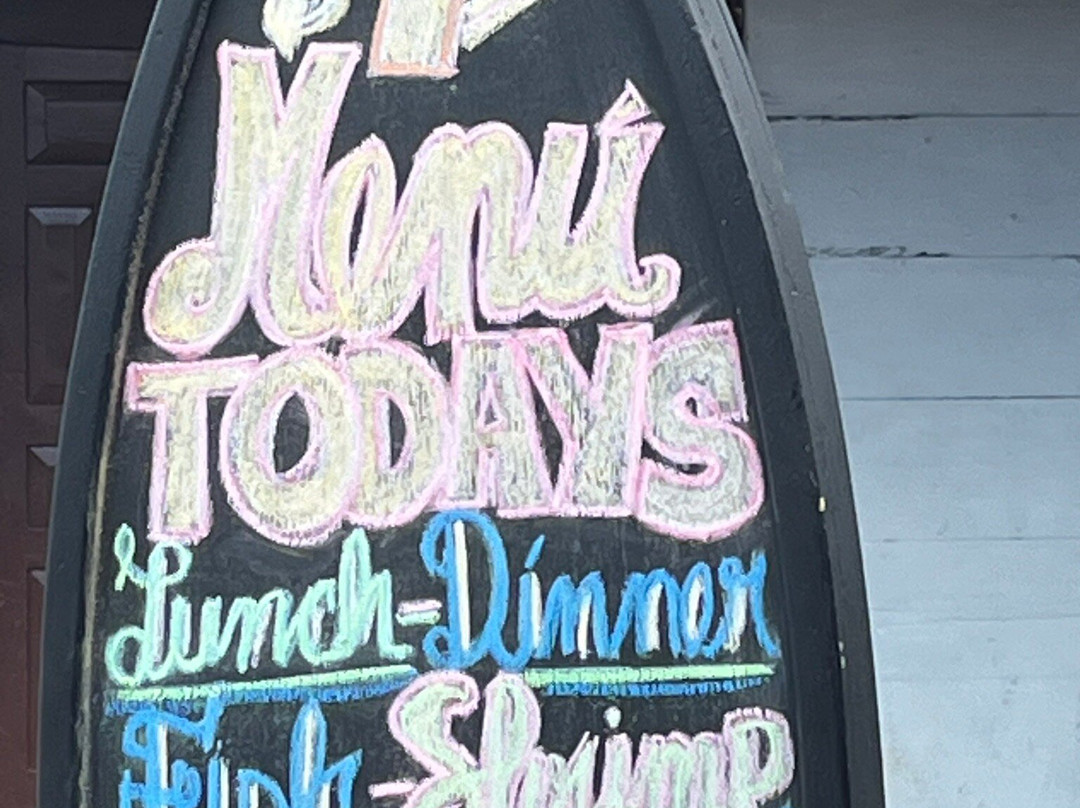 Menú
TODAYS
Lunch-Dinner
Fish-Shrimp